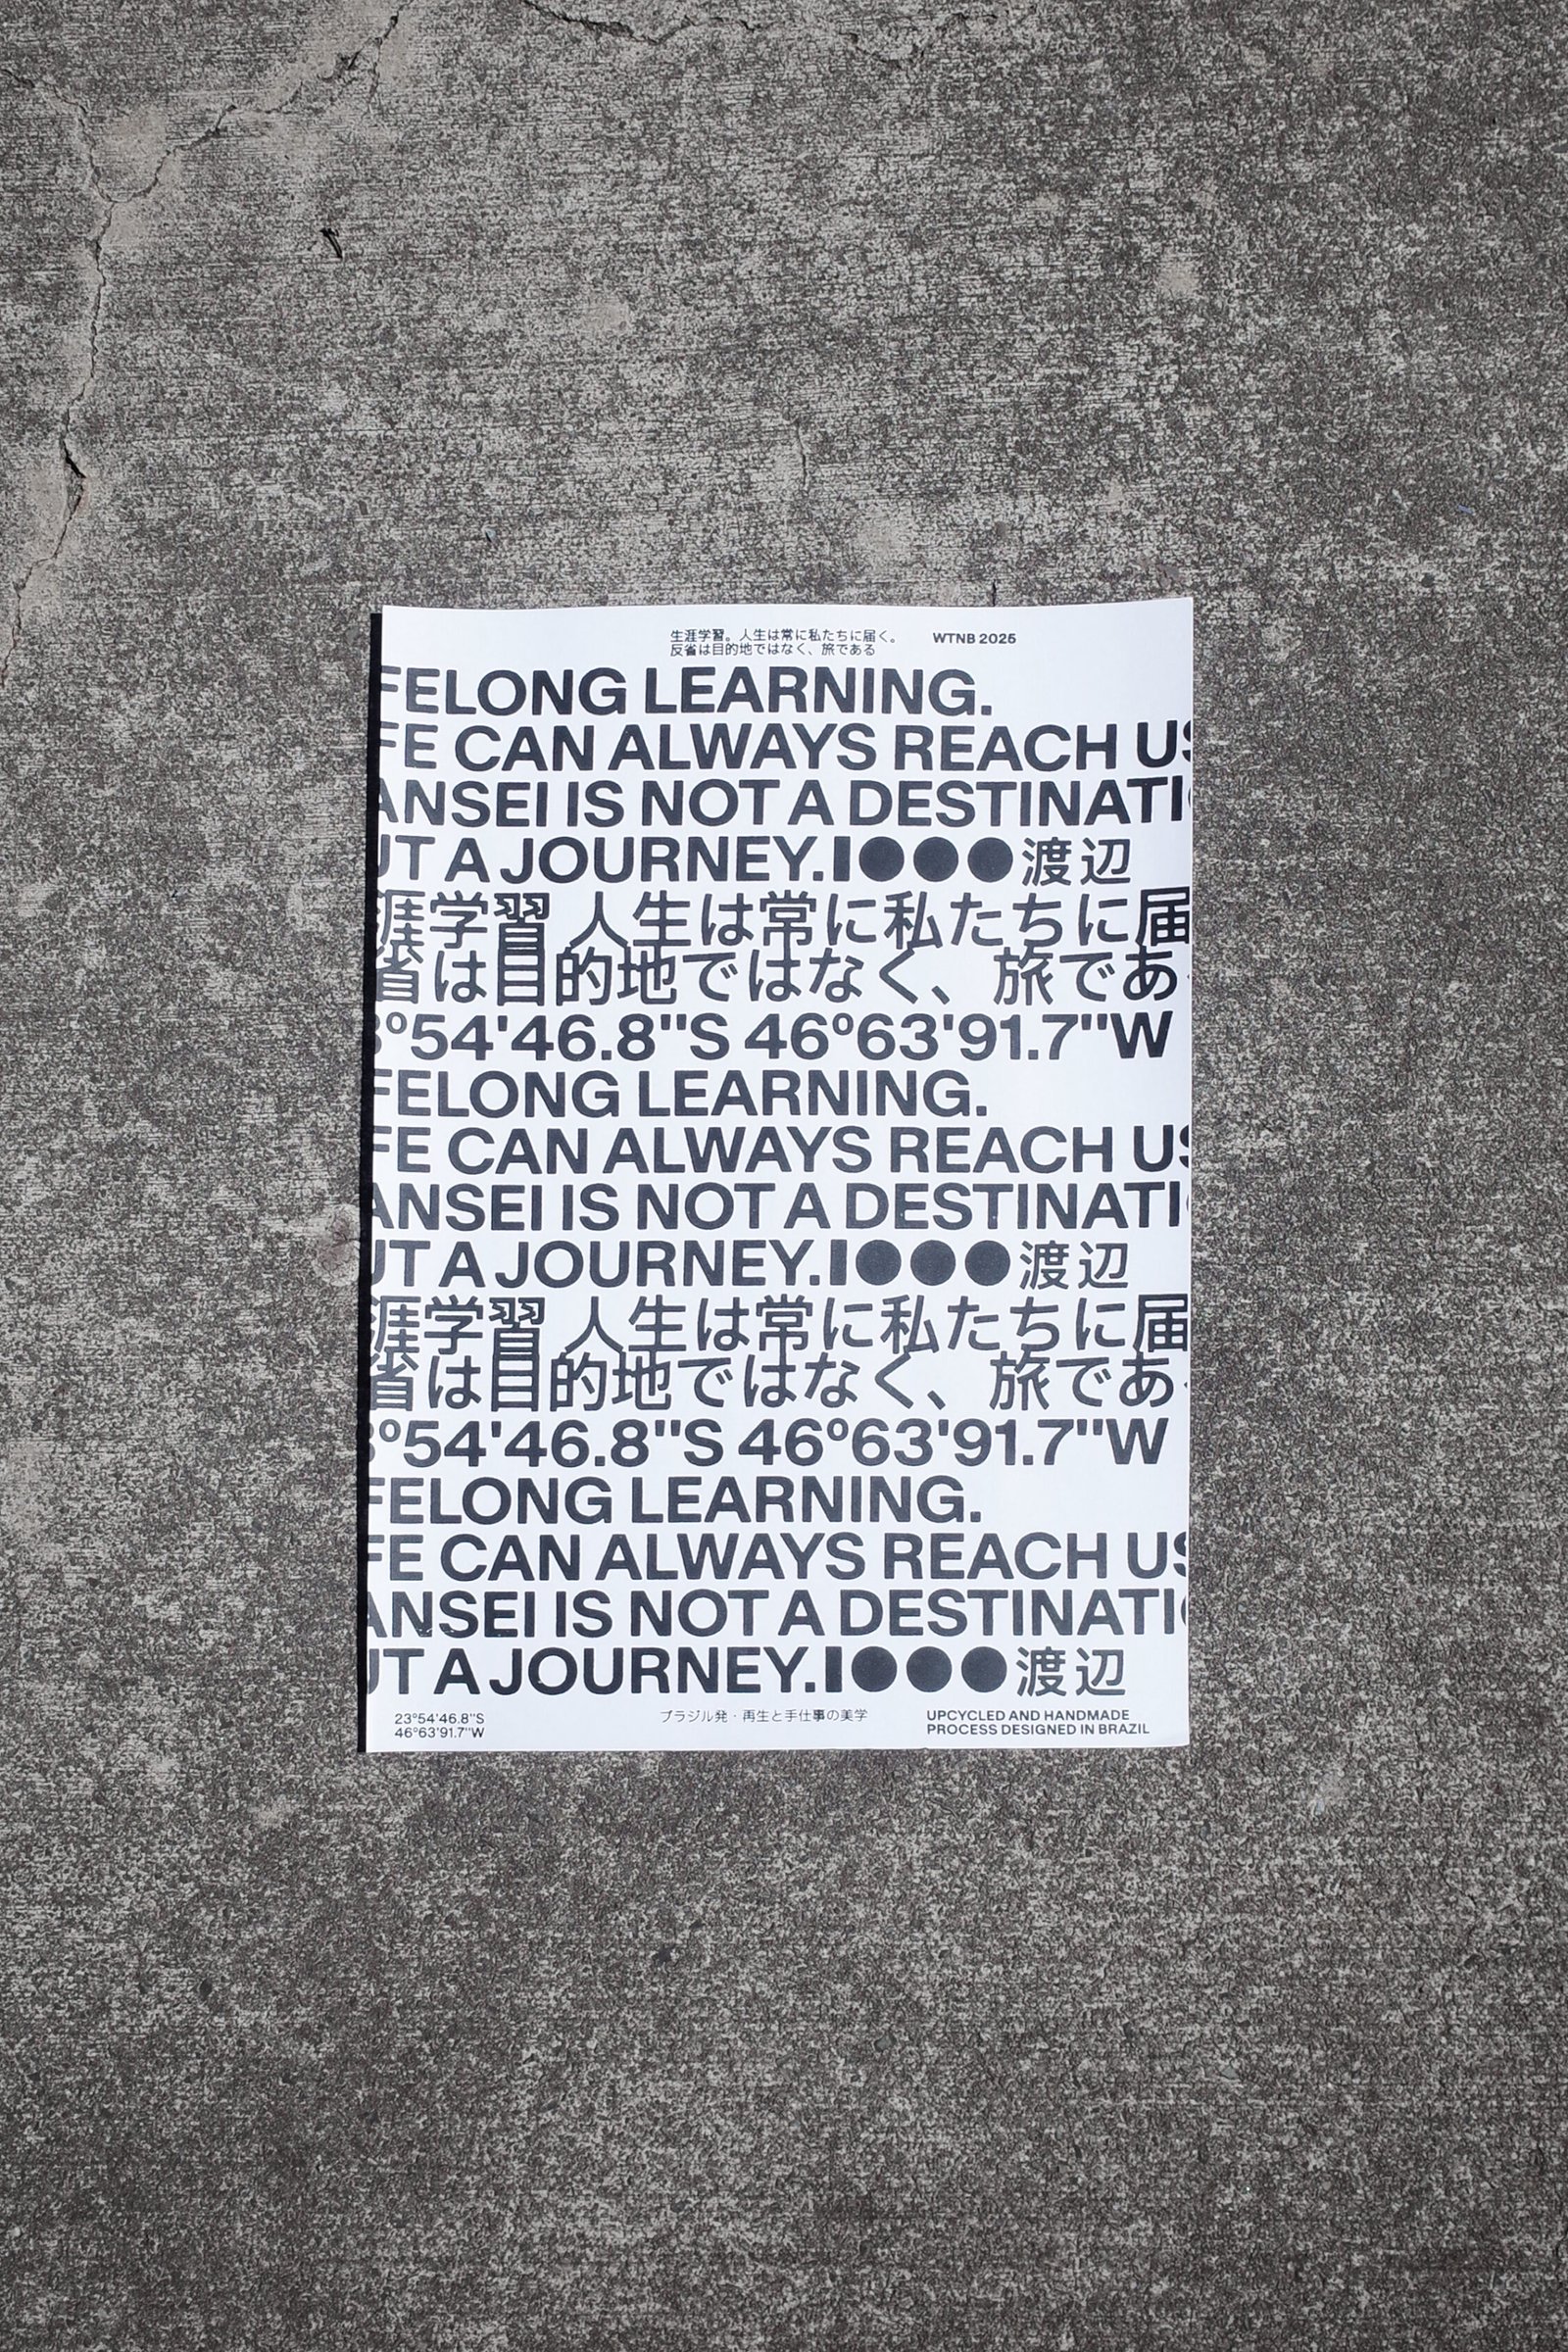 生涯学習。人生は常に私たちに届く。
反省は目的地ではなく、旅である
WTNB 2025
FELONG LEARNING.
FE CAN ALWAYS REACH US
ANSEI IS NOT A DESTINATI
UT A JOURNEY.I●●●渡辺
涯学習 人生は常に私たちに届
省は目的地ではなく、旅であ
3º54'46.8"S 46º63'91.7"W
FELONG LEARNING.
FE CAN ALWAYS REACH US
ANSEI IS NOT A DESTINATI
UT A JOURNEY.I●●●渡辺
涯学習 人生は常に私たちに届
省は目的地ではなく、旅であ
3º54'46.8"S 46º63'91.7"W
FELONG LEARNING.
FE CAN ALWAYS REACH US
ANSEI IS NOT A DESTINATI
UT A JOURNEY.I●●●渡辺
23°54'46.8"S
46°63'91.7"W
ブラジル発・再生と手仕事の美学
UPCYCLED AND HANDMADE
PROCESS DESIGNED IN BRAZIL